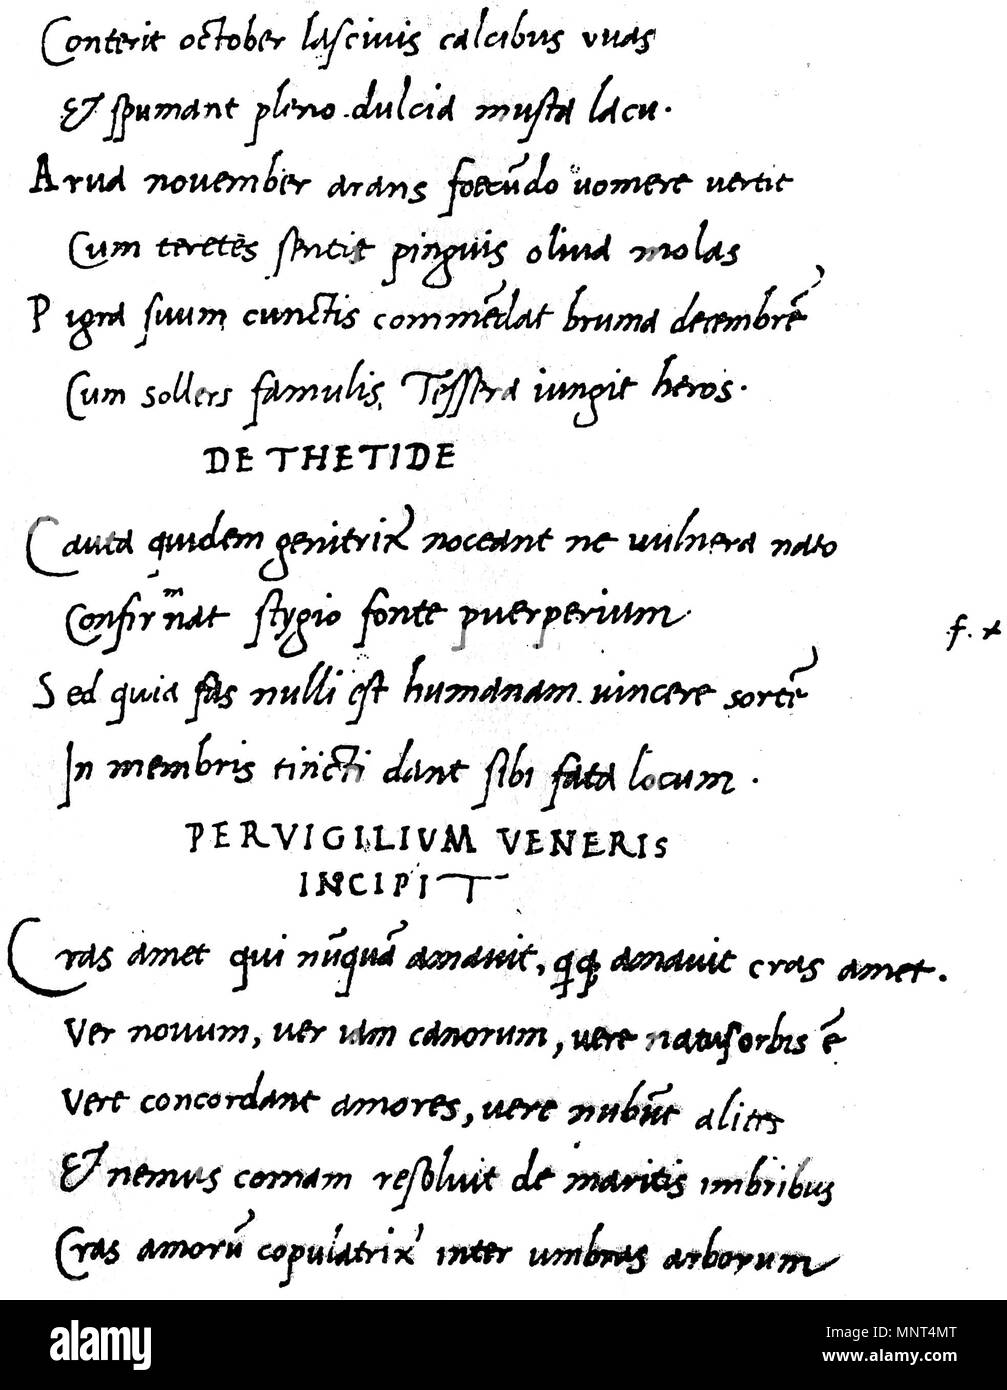 Conterit october lasciuis calcibus vuas
Et spumant pleno dulcia musta lacu.
Arua nouember arans foecũdo uomere vertit
Cum teretes sentit pinguis oliua molas
Pigra suum cunctis commẽdat bruma decembrẽ
Cum sollers famulis Tessera iungit heros.
DE THETIDE
Cauta quidem genitrix noceant ne uulnera nato
Confirmat stygio fonte puerperium
f. x
Sed quia fas nulli est humanam uincere sortẽ
In membris tincti dant sibi fata locum.
PERVIGILIVM VENERIS
INCIPIT
Cras amet qui nũquã amauit, qq amauit cras amet.
Ver nouum, uer iam canorum, uere natus orbis ẽ
Vere concordant amores, uere nubũt alites
Et nemus comam resoluit de maritis imbribus
Cras amorũ copulatrix inter umbras arborum
alamy
Image ID: MNT4MT
www.alamy.com